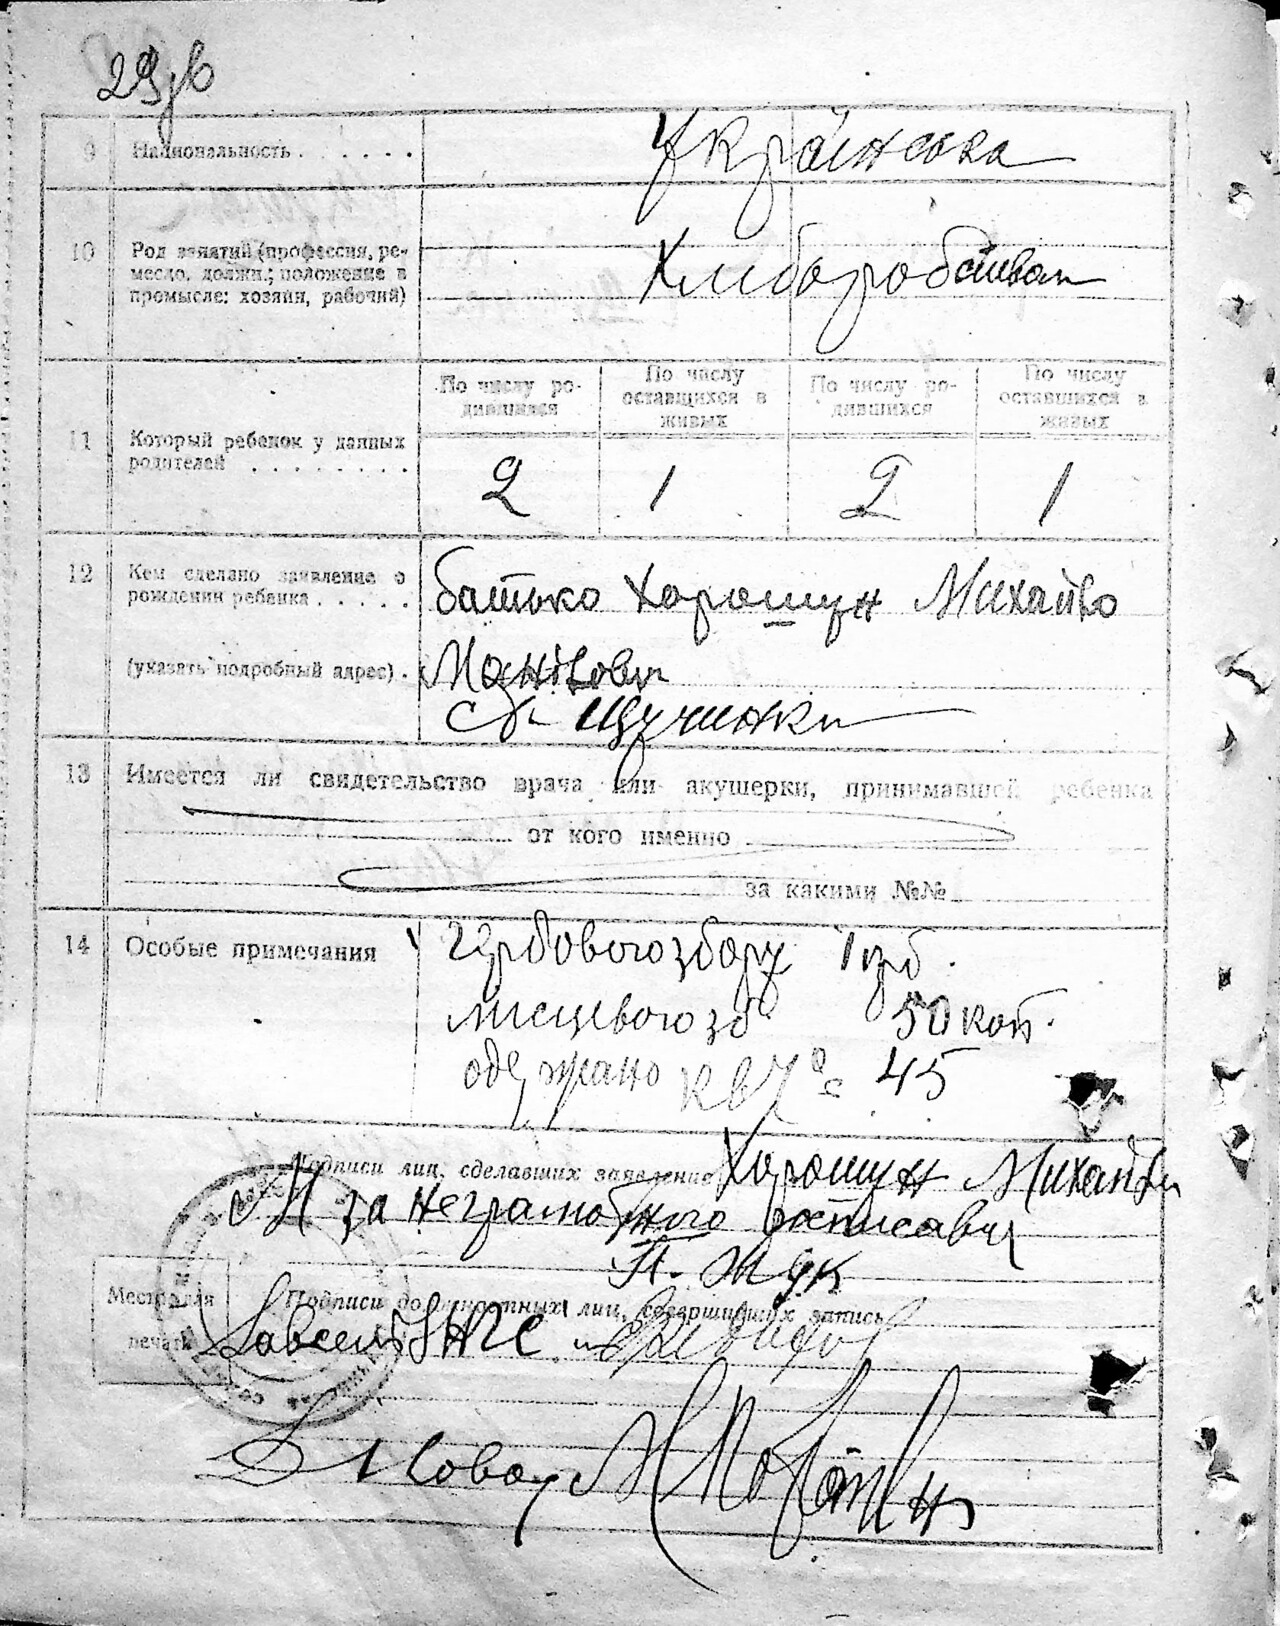 29
9 Национальность . . . . . .
Українська
10 Род занятий (профессия, ре-
месло, должн.; положение в
промысле: хозяин, рабочий)
Хліборобство
По числу ро-
дившихся
По числу
оставшихся в
живых
По числу ро-
дившихся
По числу
оставшихся в
живых
11 Который ребенок у данных
родителей . . . . . . . .
2 1 2 1
12 Кем сделано заявление о
рождении ребенка . . . . .
батько Хорошун Михайло
(указать подробный адрес) .
с. Щучинки
13 Имеется ли свидетельство врача или акушерки, принимавшей ребенка
от кого именно
за какими №№
14 Особые примечания
гербового збору 1 крб.
місцевого зб 50 коп.
одержано кв № 45
Подписи лиц, сделавших заявление Хорошун Михайло
за неграмотного росписавсь
П. Жук
Место для
печати
Подписи должностных лиц, совершивших запись
Голова